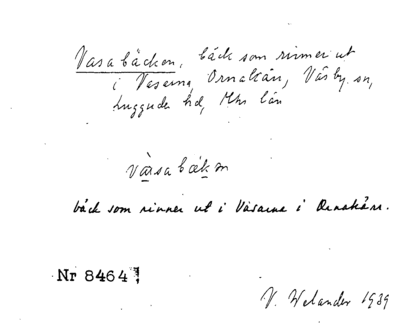 Vasabäcken, bäck som rinner ut
i Vasarna, Ornakärr, Väsby sn,
Luggude hd, Mhs län
vàrsa bäkɘn
bäck som rinner ut i Vasarna i Ornakärr.
Nr 8464
V. Welander 1939